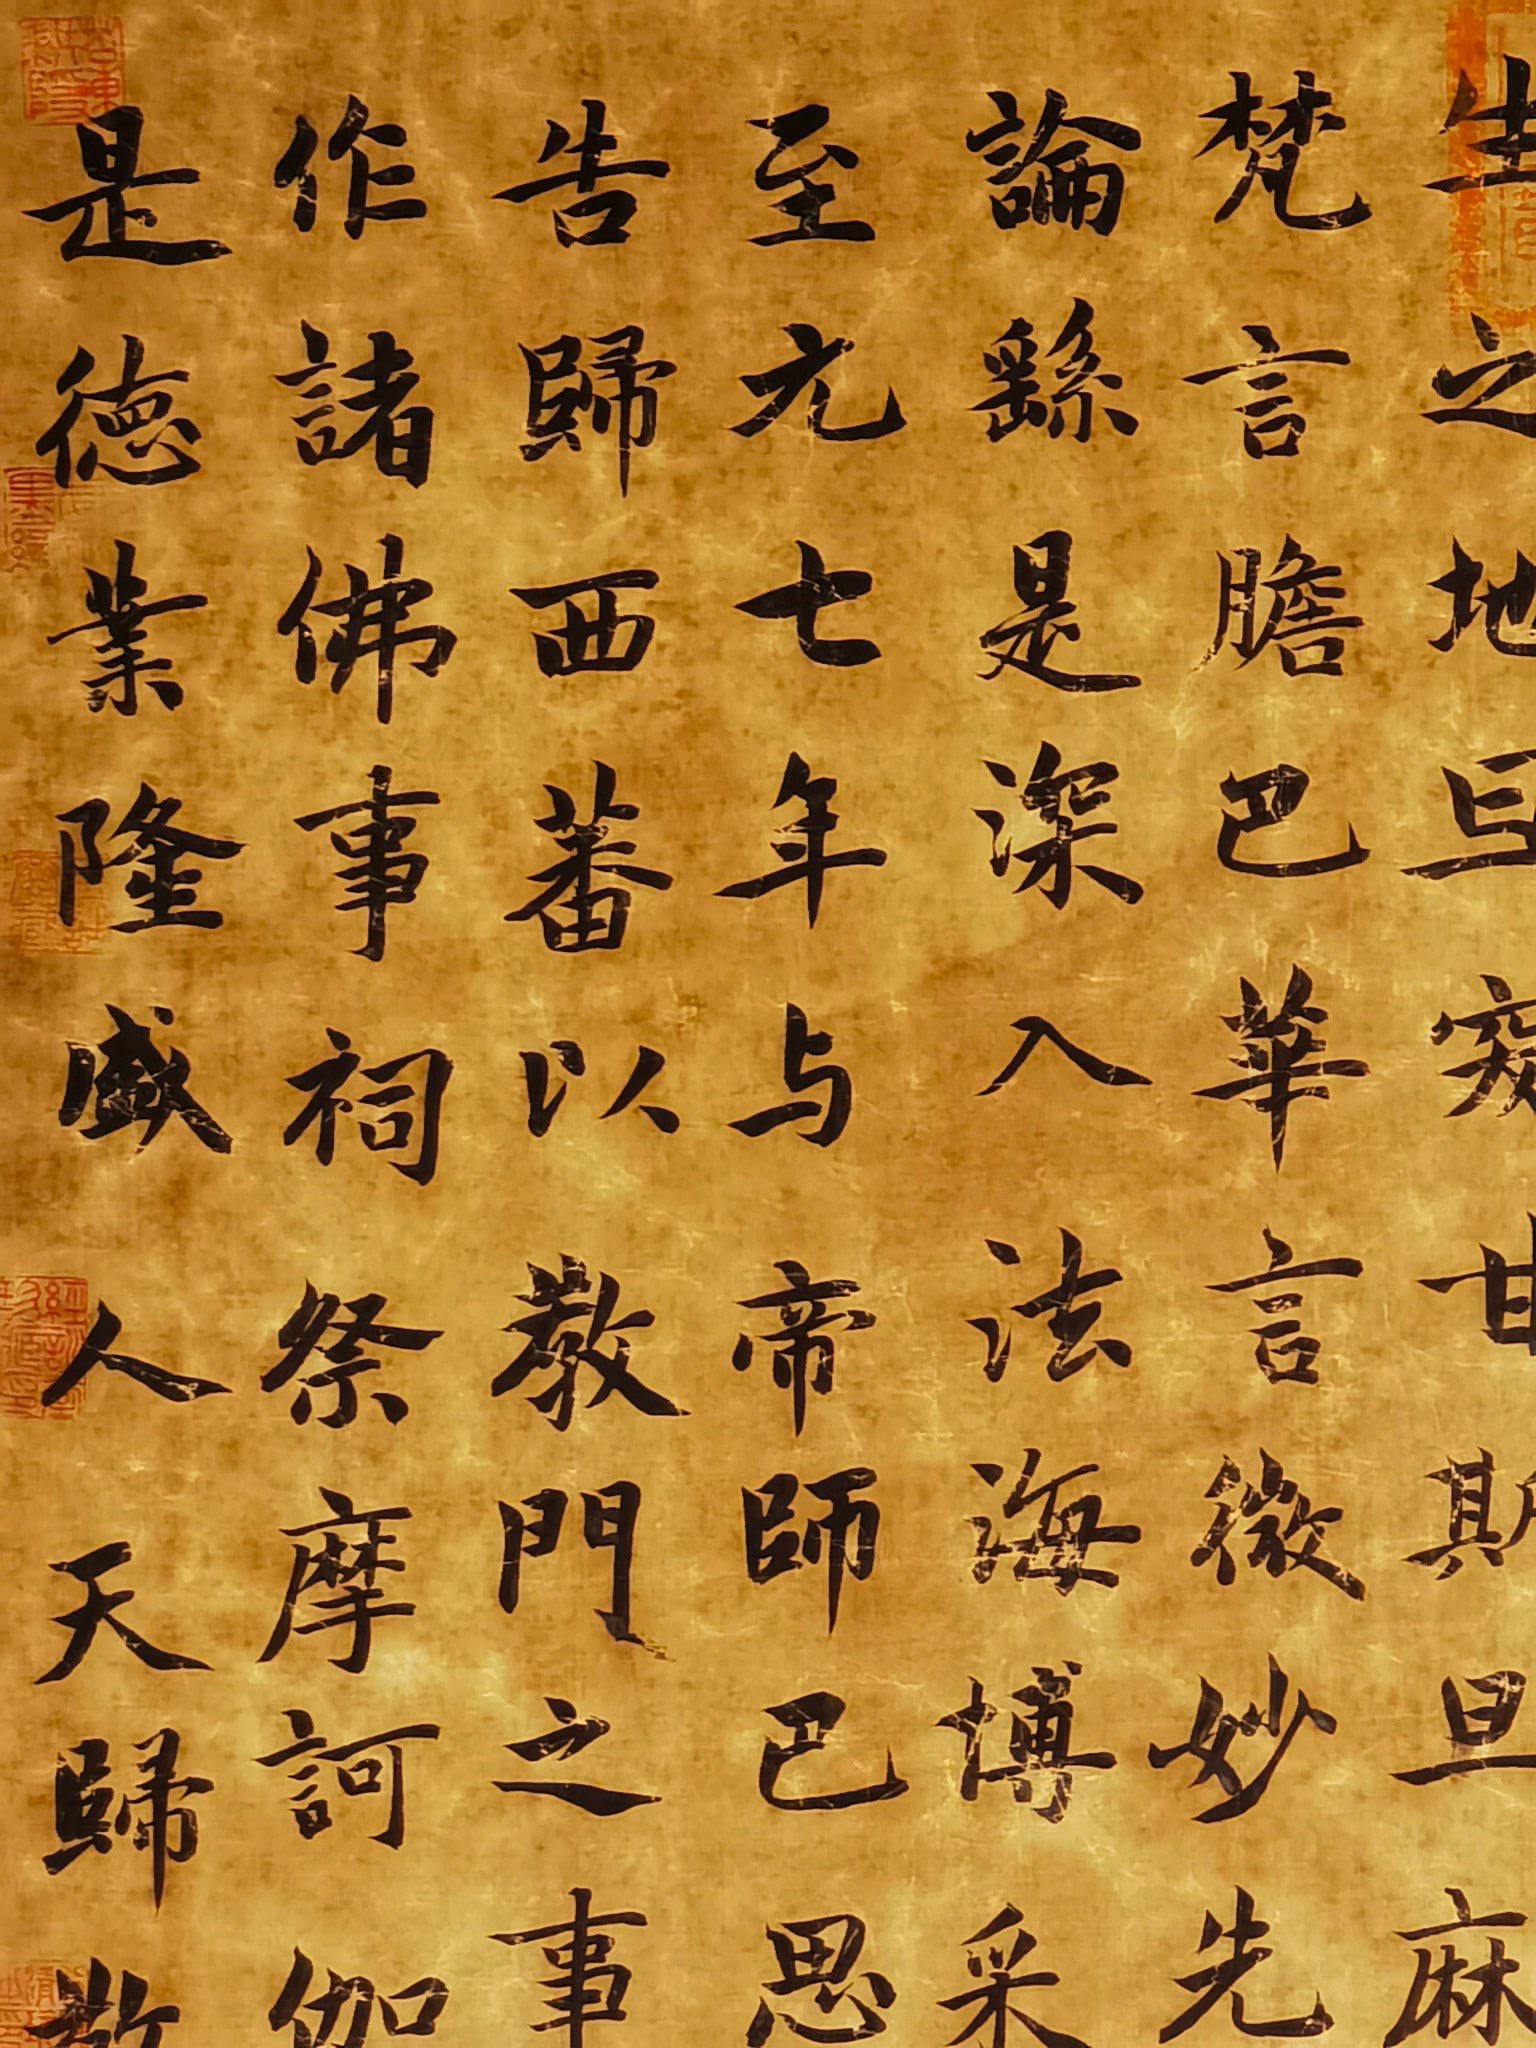 生之地曰突甘斯旦麻
梵言膽巴華言微妙先
論繇是深入法海博采
至元七年与帝師巴思
告歸西蕃以教門之事
作諸佛事祠祭摩訶伽
是德業隆盛人天歸敬